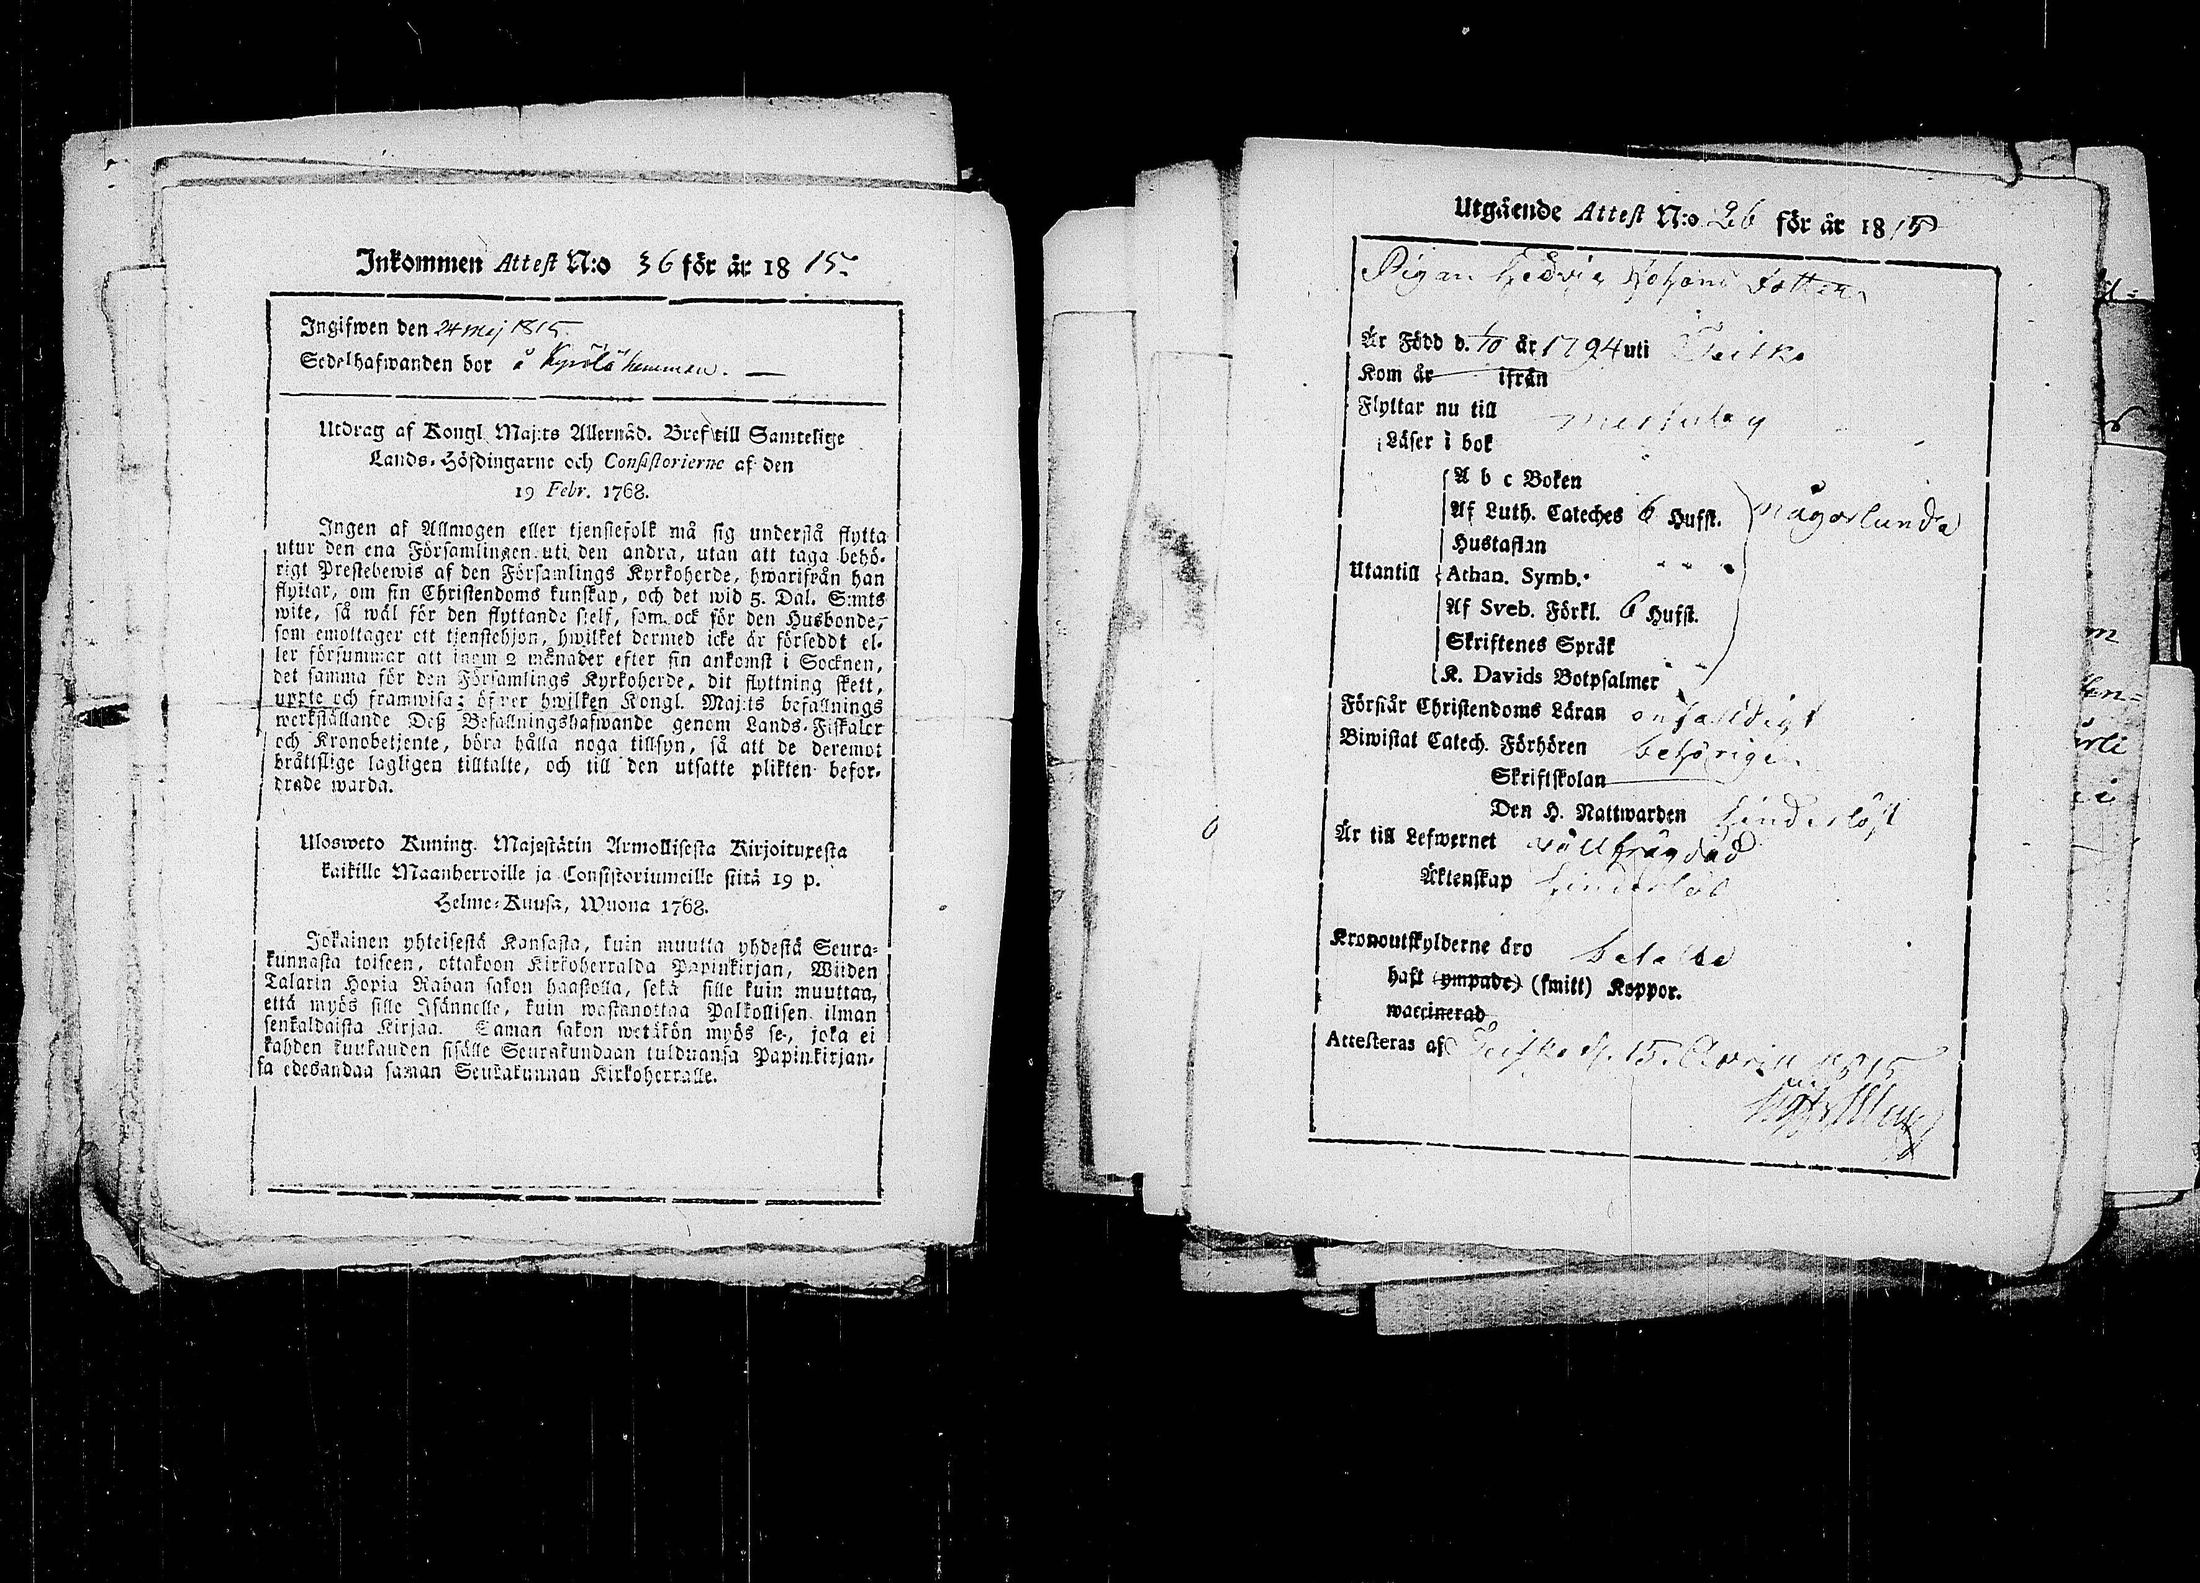 Inkommen Attest N:o 36 för år 1815.
Ingifwen den 24 Maj 1815.
Sedelhafwanden bor å Kyrölä hemman. —
Utdrag af Kongl. Maj:ts Allernåd. Bref till Samtelige
Lands-Höfdingarne och Consistorierne af den
19 Febr. 1768.
Ingen af Allmogen eller tjenstefolk må sig understå flytta
utur den ena Församlingen uti den andra, utan att taga behö-
rigt Prestebewis af den Församlings Kyrkoherde, hwarifrån han
flyttar, om sin Christendoms kunskap, och det wid 5. Dal. S:mts
wite, så wäl för den flyttande sjelf, som ock för den Husbonde,
som emottager ett tjenstehjon, hwilket dermed icke är försedt el-
ler försummar att inom 2 månader efter sin ankomst i Socknen,
det samma för den Församlings Kyrkoherde, dit flyttning skett,
uppte och framwisa; öfwer hwilken Kongl. Maj:ts befallnings
werkställande Deß Befallningshafwande genom Lands-Fiskaler
och Kronobetjente, böra hålla noga tillsyn, så att de deremot
bråttslige lagligen tilltalte, och till den utsatte plikten befor-
drade warda.
Ulosweto Kuning. Majestätin Armollisesta Kirjoituxesta
kaikille Maanherroille ja Consistoriumeille siitä 19 p.
Helme-Kuusa, Wuona 1768.
Jokainen yhteisestä Kansasta, kuin muutta yhdestä Seura-
kunnasta toiseen, ottakoon Kirkoherralda Papinkirjan, Wiiden
Talarin Hopia Rahan sakon haastolla, sekä sille kuin muuttaa,
että myös sille Isännelle, kuin wastanottaa Palkollisen ilman
senkaldaista Kirjaa. Saman sakon wetäkön myös se, joka ei
kahden kuukauden sisälle Seurakundaan tulduansa Papinkirjan-
sa edesandaa saman Seurakunnan Kirkoherralle.
Utgående Attest N:o 26 för år 1815
Pigan Hedvig Johans dotter
Är Född d. 1/10 år 1794 uti Teisko
Kom år — ifrån
Flyttar nu till Messuby
Läser i bok
A b c Boken
Af Luth. Cateches 6 Hufst. någorlunda
Hustaflan
Utantill Athan. Symb.
Af Sveb. Förkl. 6 Hufst.
Skriftenes Språk
K. Davids Botpsalmer
Förstår Christendoms Läran enfaldigt
Biwistat Catech. Förhören behörigen
Skriftskolan —
Den H. Nattwarden hinderlöst
Är till Lefwernet wällfrägdad
Äktenskap hinderlös
Kronoutskylderne äro betalte
haft (ympade) (smitt) Koppor.
waccinerad
Attesteras af Teisko d. 15 April 1815